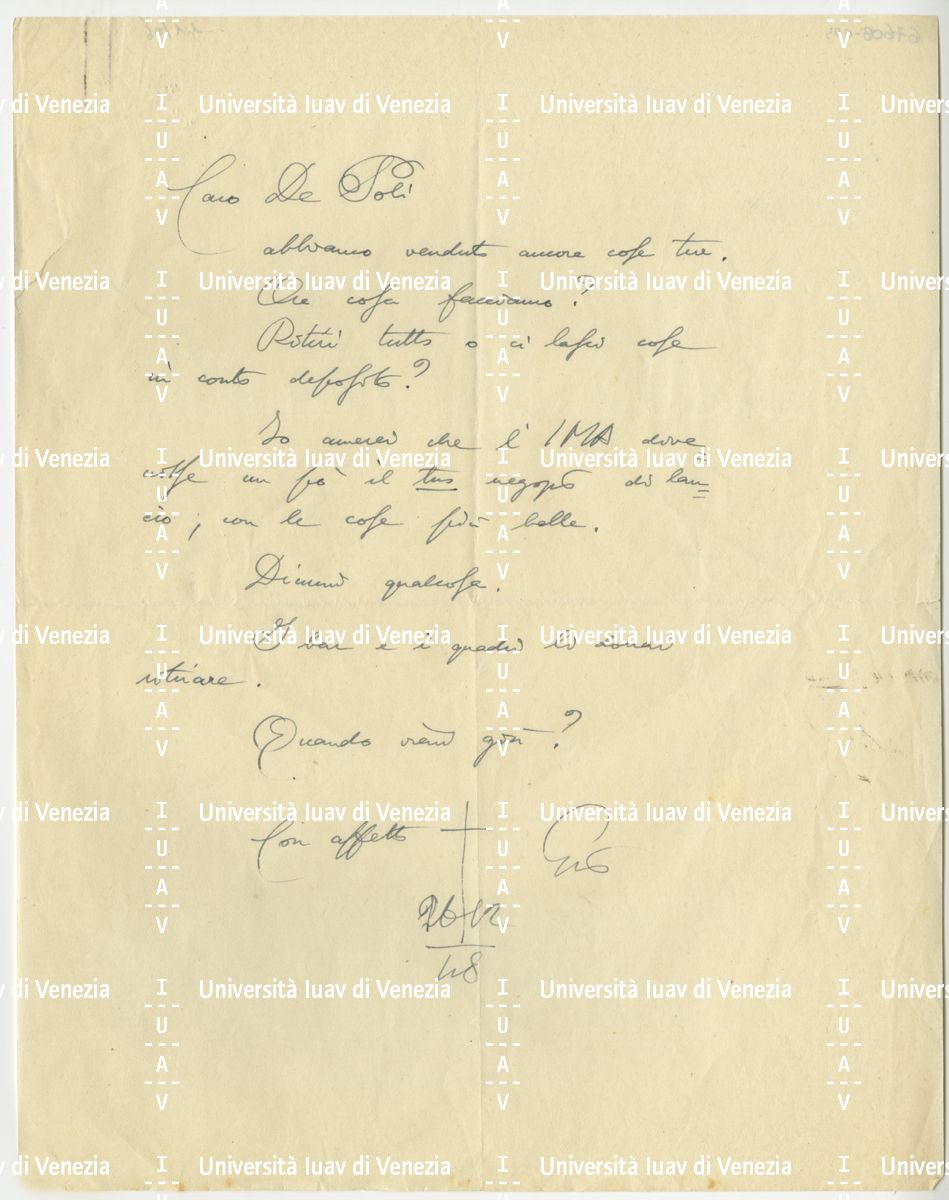 Caro De Poli
abbiamo venduto ancora cose tue.
Che cosa facciamo?
Ritiri tutto o ci lasci cose
in conto deposito?
Io amerei che l'IMA dove
un pò il tuo negozio di lan
cio, con le cose più belle.
Dimmi qualcosa.
I vasi e i quadri li
ritirare.
Quando vieni giù?
Con affetto Giò
26-12
48
Università Iuav di Venezia
I
U
A
V